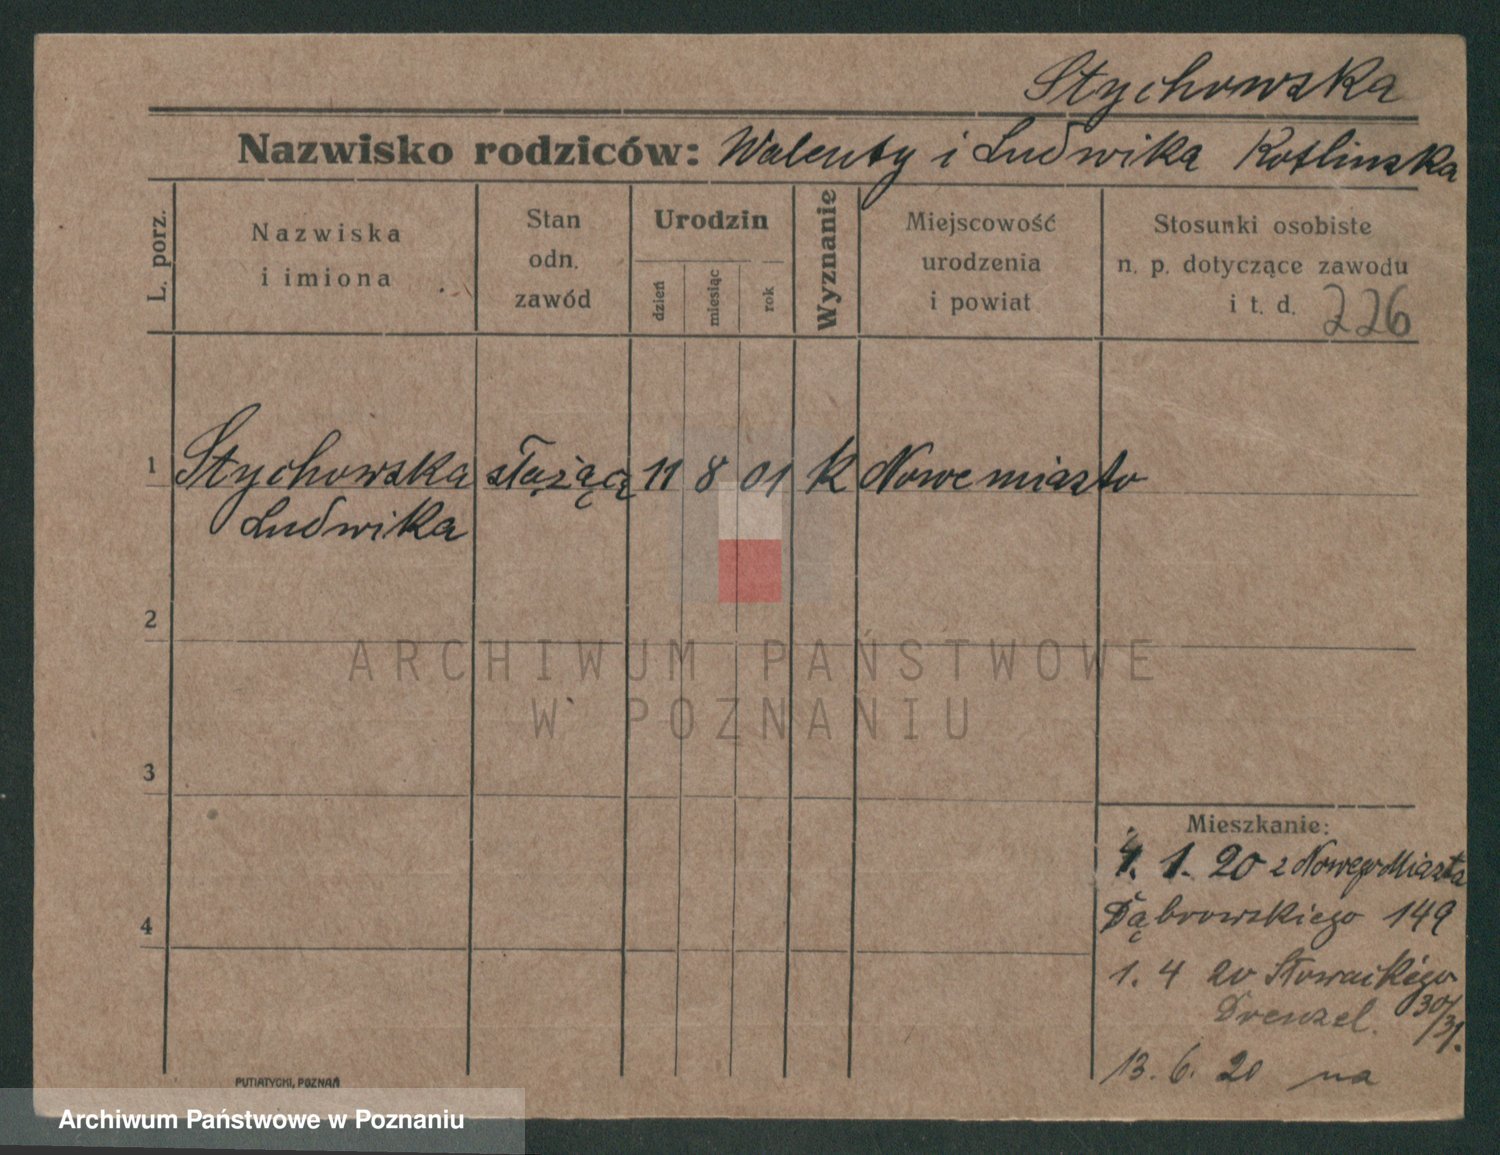 Stychowska
Nazwisko rodziców: Walenty i Ludwika Kotlinska
L. porz.
Nazwiska
i imiona
Stan
odn.
zawód
Urodzin
dzień
miesiąc
rok
Wyznanie
Miejscowość
urodzenia
i powiat
Stosunki osobiste
n. p. dotyczące zawodu
i t. d. 226
1 Stychowska służącą 11 8 01 k Nowe miasto
Ludwika
2
ARCHIWUM PAŃSTWOWE
W POZNANIU
3
Mieszkanie:
4. 1. 20 z Nowego Miasta
4
Dąbrowskiego 149
1. 4 20 Słowackiego
30/31.
Drenzel.
13. 6. 20 na
PUTIATYCKI, POZNAŃ
Archiwum Państwowe w Poznaniu